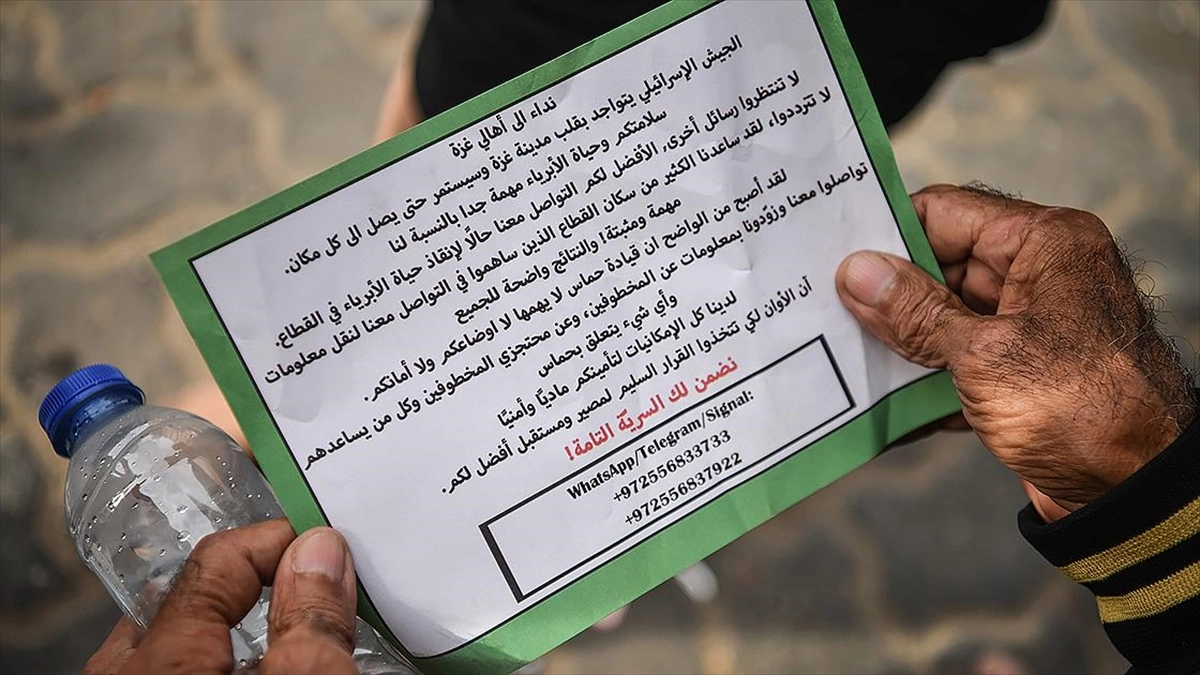 نداء الى أهالي غزة
الجيش الإسرائيلي يتواجد بقلب مدينة غزة وسيستمر حتى يصل الى كل مكان.
سلامتكم وحياة الأبرياء مهمة جدا بالنسبة لنا
لا تنتظروا رسائل أخرى, الأفضل لكم التواصل معنا حالًا لإنقاذ حياة الأبرياء في القطاع.
لا تترددوا، لقد ساعدنا الكثير من سكان القطاع الذين ساهموا في التواصل معنا لنقل معلومات
مهمة ومثبتة! والنتائج واضحة للجميع
لقد أصبح من الواضح ان قيادة حماس لا يهمها لا اوضاعكم ولا أمانكم.
تواصلوا معنا وزوّدونا بمعلومات عن المخطوفين، وعن محتجزي المخطوفين وكل من يساعدهم
وأي شيء يتعلق بحماس
لدينا كل الإمكانيات لتأمينكم ماديًا وأمنيًا
أن الأوان لكي تتخذوا القرار السليم لمصير ومستقبل أفضل لكم.
نضمن لك السريّة التامة!
WhatsApp/Telegram/Signal:
+972556833733
+972556837922